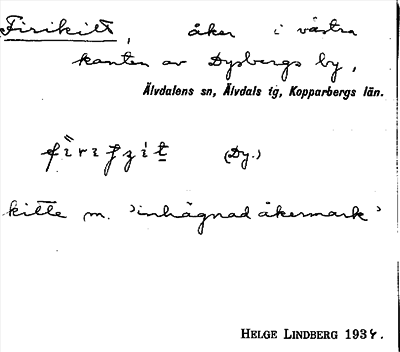 Firikilt, åker i västra
kanten av Dysbergs by,
Älvdalens sn, Älvdals tg, Kopparbergs län.
(Dy.)
kitte m. 'inhägnad åkermark'
HELGE LINDBERG 1934.